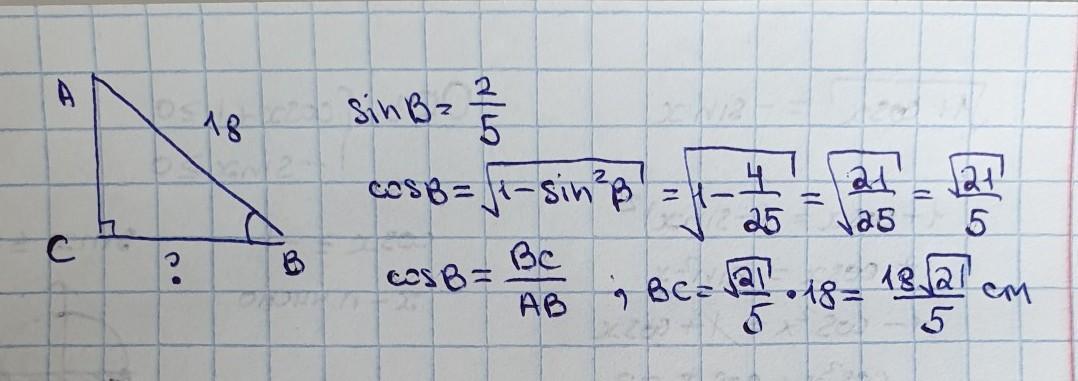 A
18
C
?
B
sinB = 2/5
cosB = √(1 - sin²B) = √(1 - 4/25) = √(21/25) = √21/5
cosB = BC/AB ; BC = √21/5 · 18 = 18√21/5 см